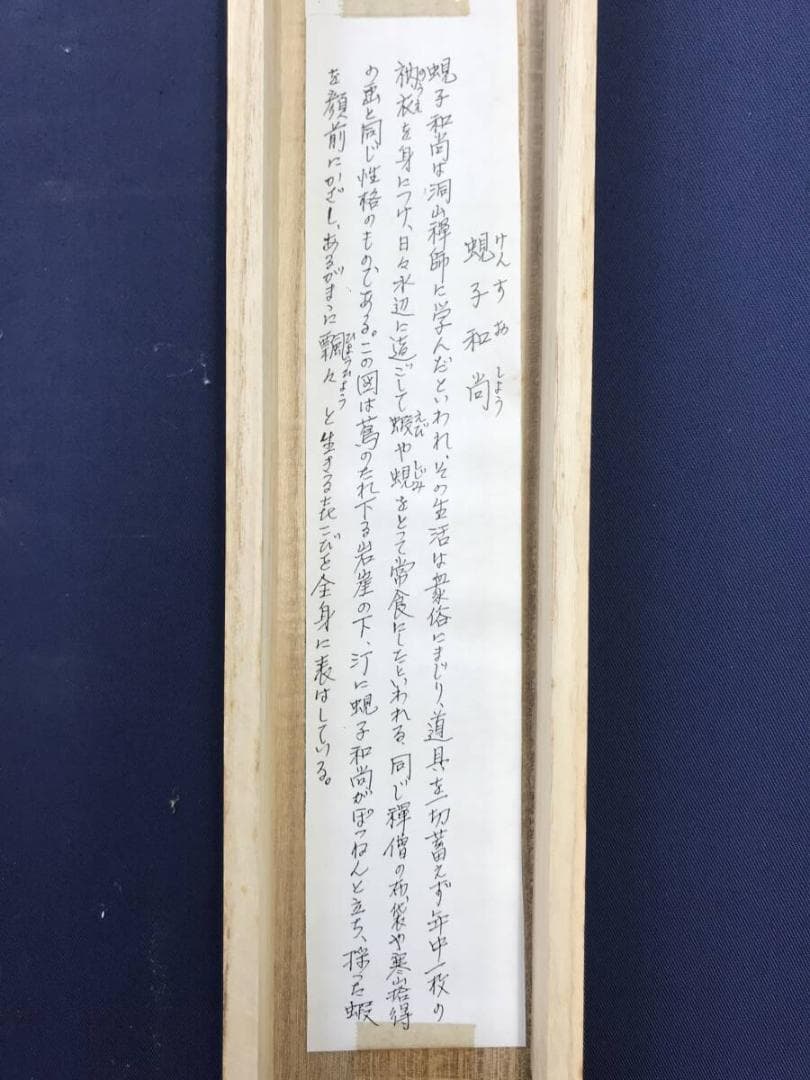 蜆子和尚
けんすおしょう
蜆子和尚は洞山禅師に学んだといわれ、その生活は衆俗にまじり、道具を一切蓄えず年中一枚の
衲衣を身につけ、日々水辺に過ごして蝦や蜆をとって常食にしたといわれる、同じ禅僧の布袋や寒山拾得
の画と同じ性格のものである。この図は蔦のたれ下る岩崖の下、汀に蜆子和尚がぽつねんと立ち、採った蝦
を顔前にかざし、あるがまゝに飄々と生きる喜こびを全身に表はしている。
のうえ
えび
しじみ
ひょうひょう